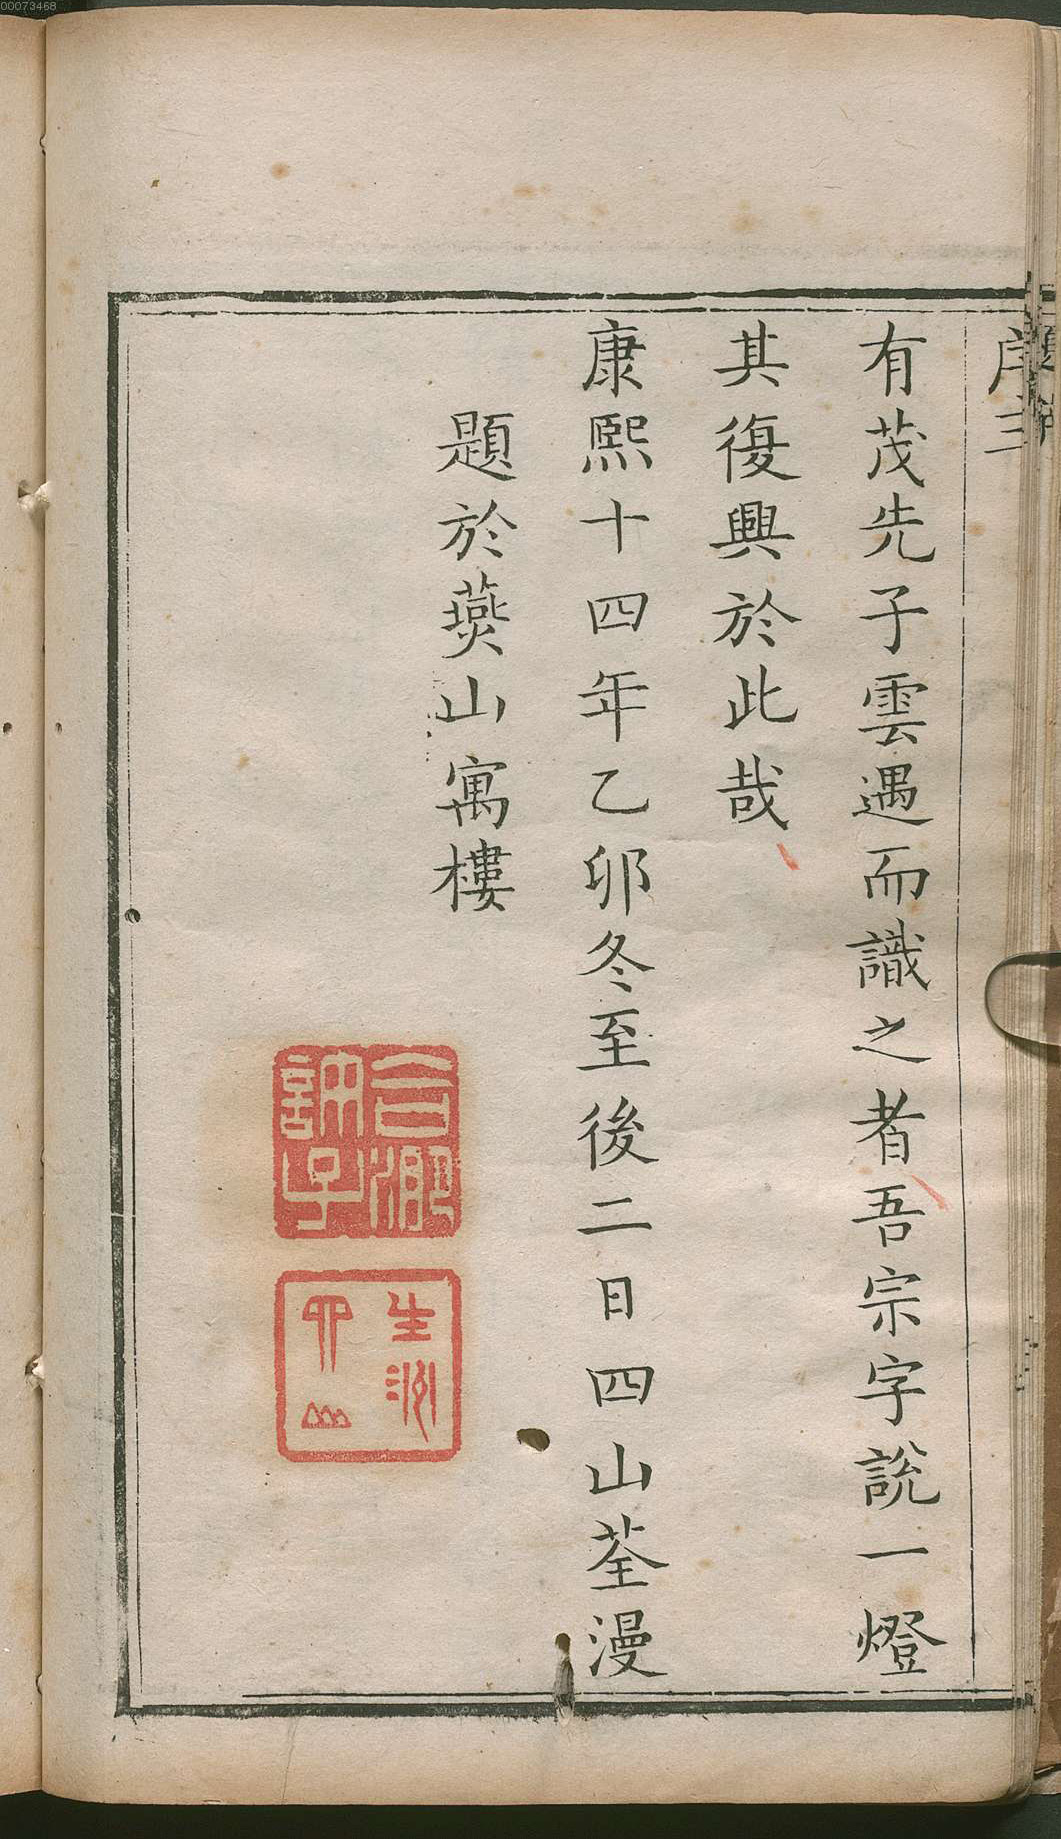 00073468
序三
有茂先子雲遇而識之者吾宗字說一燈
其復興於此哉
康熙十四年乙卯冬至後二日四山荃漫
題於燕山寓樓